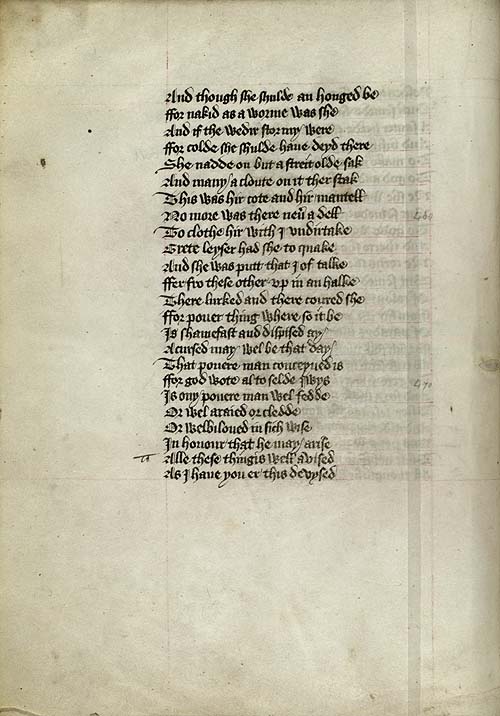 And though she shulde an honged be
ffor nakid as a worme was she
And if the wedir stormy were
ffor colde she shulde haue deyd there
She nadde on but a streit olde sak
And many a cloute on it ther stak
This was hir cote and hir mantell
No more was there neuͥ a dell
To clothe hir with I vndirtake
Grete leyser had she to quake
And she was putt that I of talke
ffer fro these other vp in an halke
There lurked and there coured she
ffor pouer thing where so it be
Is shamefast and dispised ay
Acursed may wel be that day
That pouere man conceyued is
ffor god wote al to selde iwys
Is ony pouere man wel fedde
Or wel araied or cledde
Or welbiloued in sich wise
In honour that he may arise
Alle these thingis well avised
As I haue you er this devysed